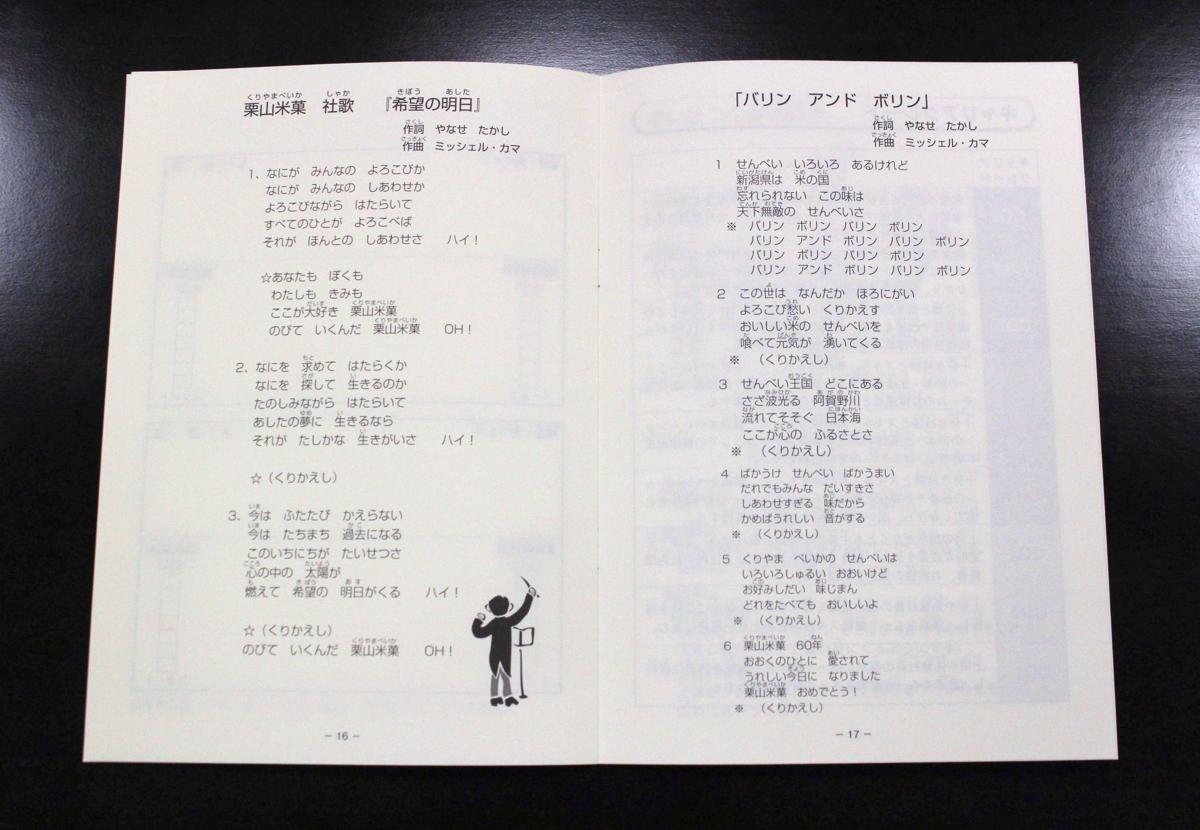 栗山米菓　社歌　『希望の明日』
作詞　やなせ　たかし
作曲　ミッシェル・カマ
1、なにが　みんなの　よろこびか
なにが　みんなの　しあわせか
よろこびながら　はたらいて
すべてのひとが　よろこべば
それが　ほんとの　しあわせさ　ハイ！
☆あなたも　ぼくも
わたしも　きみも
ここが大好き　栗山米菓
のびて　いくんだ　栗山米菓　OH！
2、なにを　求めて　はたらくか
なにを　探して　生きるのか
たのしみながら　はたらいて
あしたの夢に　生きるなら
それが　たしかな　生きがいさ　ハイ！
☆（くりかえし）
3、今は　ふたたび　かえらない
今は　たちまち　過去になる
このいちにちが　たいせつさ
心の中の　太陽が
燃えて　希望の　明日がくる　ハイ！
☆（くりかえし）
のびて　いくんだ　栗山米菓　OH！
－ 16 －
「バリン　アンド　ボリン」
作詞　やなせ　たかし
作曲　ミッシェル・カマ
1　せんべい　いろいろ　あるけれど
新潟県は　米の国
忘れられない　この味は
天下無敵の　せんべいさ
※　バリン　ボリン　バリン　ボリン
バリン　アンド　ボリン　バリン　ボリン
バリン　ボリン　バリン　ボリン
バリン　アンド　ボリン　バリン　ボリン
2　この世は　なんだか　ほろにがい
よろこび愁い　くりかえす
おいしい米の　せんべいを
喰べて元気が　湧いてくる
※　（くりかえし）
3　せんべい王国　どこにある
さざ波光る　阿賀野川
流れてそそぐ　日本海
ここが心の　ふるさとさ
※　（くりかえし）
4　ばかうけ　せんべい　ばかうまい
だれでもみんな　だいすきさ
しあわせすぎる　味だから
かめばうれしい　音がする
※　（くりかえし）
5　くりやま　べいかの　せんべいは
いろいろしゅるい　おおいけど
お好みしだい　味じまん
どれをたべても　おいしいよ
※　（くりかえし）
6　栗山米菓　60年
おおくのひとに　愛されて
うれしい今日に　なりました
栗山米菓　おめでとう！
※　（くりかえし）
－ 17 －